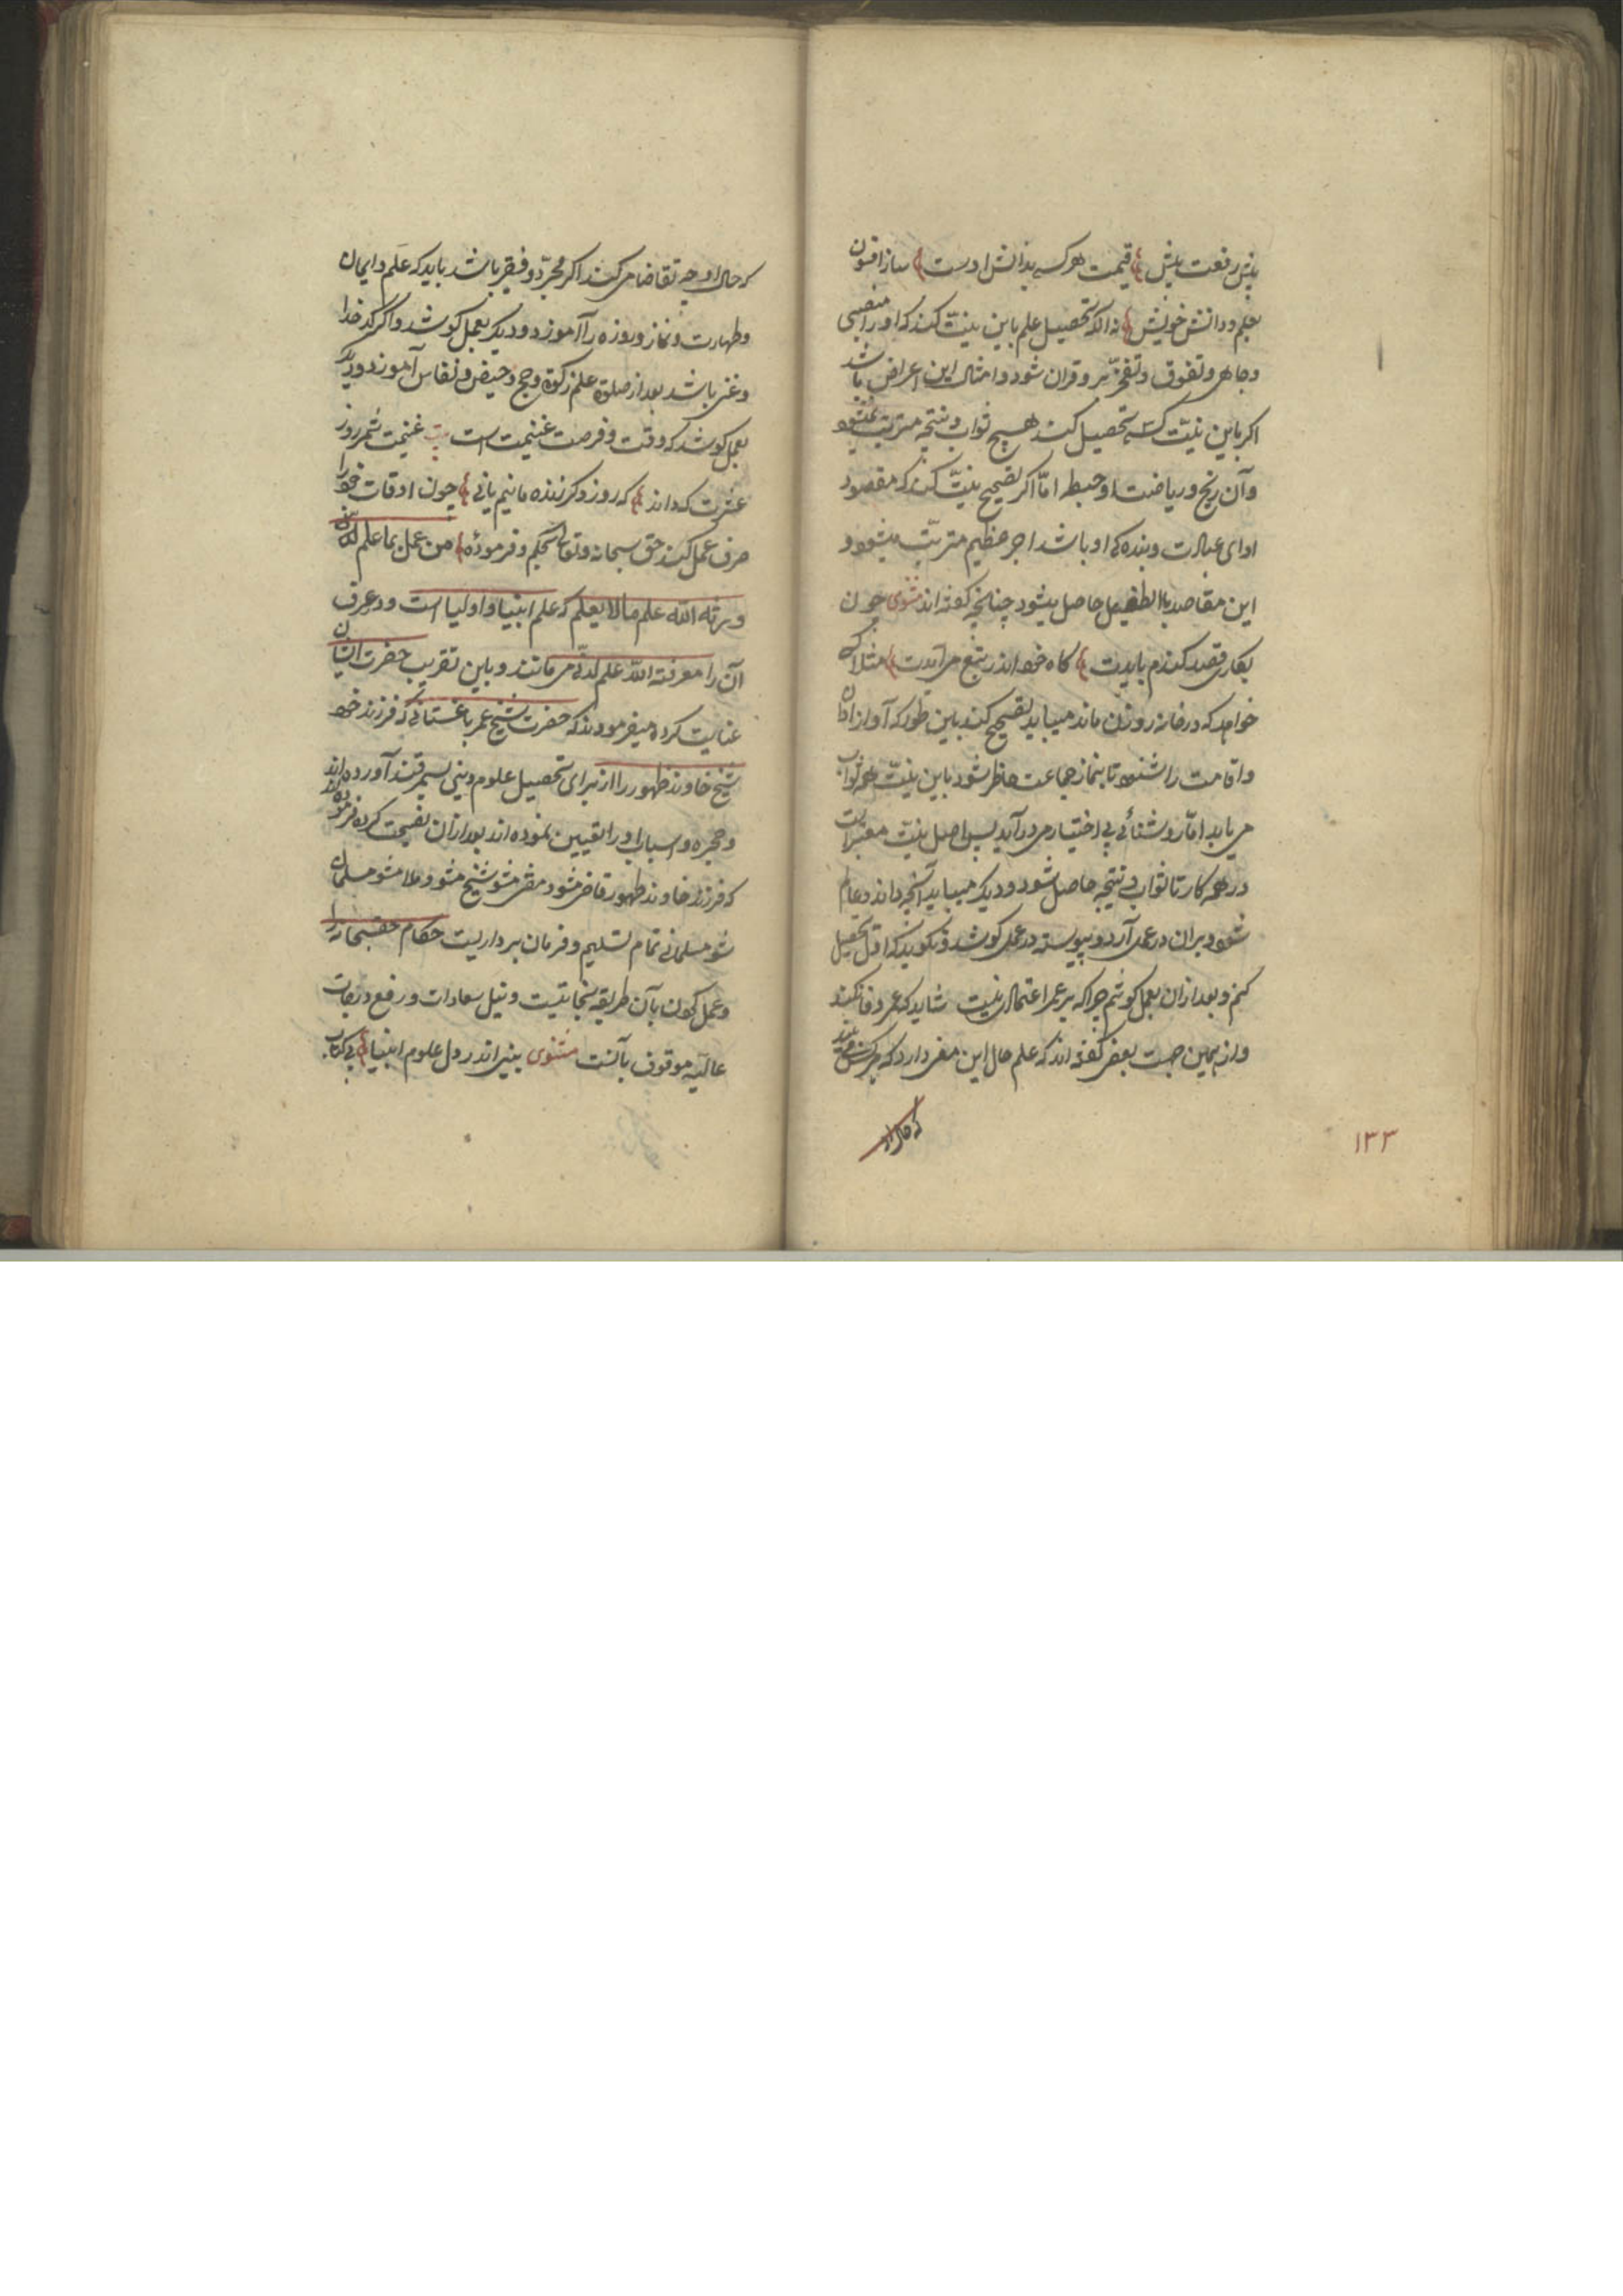 پیش رفعت بیش قیمت هر کسے بدانش اوست ساز افسون
بعلم و دانش خویش نه انکه تحصیل علم باین نیت کند که او را منصبی
و جاهی و تفوق و تفخر بر و قران شود و امثال این اعراض باشد
اکر باین نیت کسے تحصیل کند هیچ ثواب و نتیجه مترتب نشود
و آن رنج و ریاضت او حبطه امّا اکر تصحیح نیت کند که مقصود
ادای عبادت و بنده کی او باشد اجر عظیم مترتب میشود و
این مقاصد بالطفیل حاصل میشود چنانچه کفته اند مثنوی چون
بکاری قصد کندم بایدت کاه خود اندر تبع می آیدت مثلا کسے
خواهد که در خانه روزن ماند میباید تصحیح کند باین طور که آواز اذان
و اقامت را شنود تا بنماز جماعت حاظر شود باین نیت همه ثواب
می یابد امّا روشنائی بی اختیار می درآید پس اصل نیت معتبر است
در همه کار تا ثواب و نتیجه حاصل شود و دیکر میباید آنچه داند و عالم
شود بران در عمل آرد و پیوسته در عمل کوشد و نکوید که اوّل تحصیل
کنم و بعد ازان بعمل کوشم چرا که بر عمر اعتمادی نیست شاید که عمر وفا نکند
و از همین جهت بعضی کفته اند که علم حال این معنی دارد که هر کس
که حال او
۱۳۳
که حال او چه تقاضا می کند اکر مجرّد و فقیر باشد باید که علم و ایمان
و طهارت و نماز و روزه را آموزد و دیکر بعمل کوشد و اکر کدخدا
و غنی باشد بعد از صلوة علم زکوة و حج و حیض و نفاس آموزد و دیکر
بعمل کوشد که وقت و فرصت غنیمت است بیت غنیمت شمر روز
عشرت که داند که روز دکر زنده مانیم یا نی چون اوقات خود را
صرف عمل کند حق سبحانه و تعالی بحکم و فرموده من عمل بما علم
ورثه الله علم ما لا یعلم که علم انبیا و اولیا است و در عرف
آن را معرفة الله علم لدنّی می مانند و باین تقریب حضرت ایشان
عنایت کرده میفرمودند که حضرت شیخ عمر باغستانی که فرزند خود
شیخ خاوند طهور را از برای تحصیل علوم دینی بسمرقند آورده اند
و حجره و اسباب او را تعیین نموده اند بعد ازان نصیحت کرده فرموده اند
که فرزند خاوند طهور قاضی مشو و مفتی مشو شیخ مشو و ملا مشو مسلمان
شو مسلمانی تمام تسلیم و فرمان برداریست حکام حقسبحانه را
و عمل کردن بآن طریقه نجاتست و نیل سعادات و رفع درجات
عالیه موقوف بآنست مثنوی بینی اندر دل علوم انبیا بی کتاب